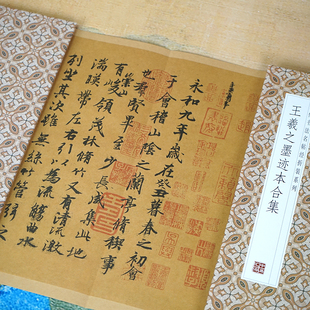 永和九年歲在癸丑暮春之初會
于會稽山陰之蘭亭脩稧事
也羣賢畢至少長咸集此地
有崇山峻領茂林脩竹又有清流激
湍暎帶左右引以為流觴曲水
列坐其次雖無絲竹管弦之
王羲之墨迹本合集